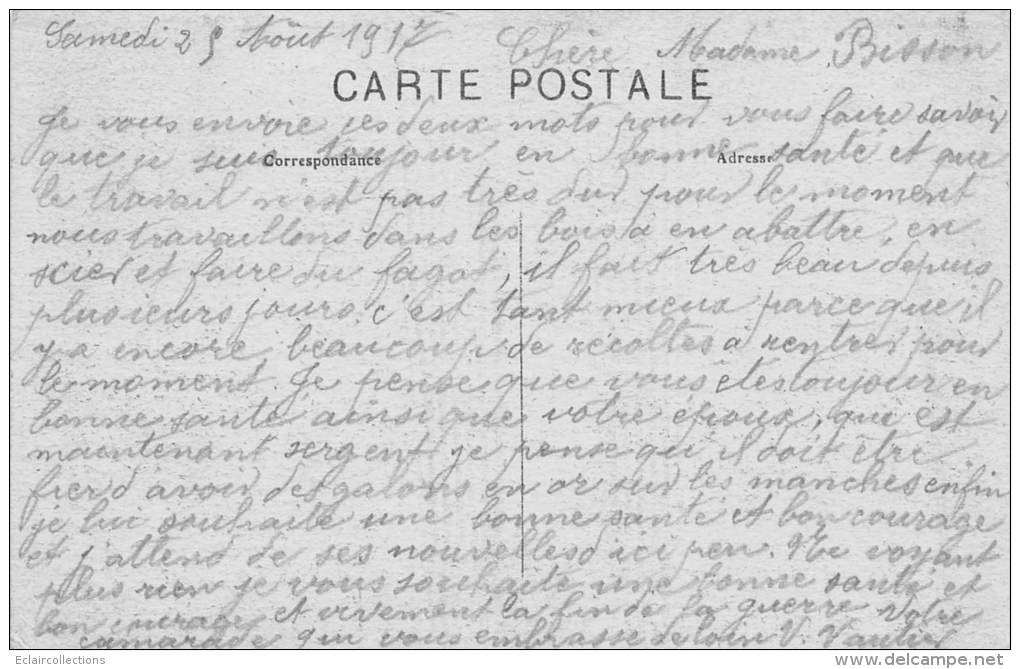 Samedi 25 Août 1917 Chère Madame Bisson
CARTE POSTALE
Je vous envoie ces deux mots pour vous faire savoir
Correspondance Adresse
que je suis toujour en bonne santé et que
le travail n'est pas très dur pour le moment
nous travaillons dans les bois a en abattre, en
scier et faire du fagot, il fait très beau depuis
plusieurs jours c'est tant mieux parce que il
y a encore beaucoup de récoltes a rentrer pour
le moment. Je pense que vous etes toujour en
bonne santé ainsi que votre époux, qui est
maintenant sergent je pense qu'il doit être
fier d'avoir des galons en or sur les manches enfin
je lui souhaite une bonne santé et bon courage
et j'attend de ses nouvelles d'ici peu. Ne voyant
plus rien je vous souhaite une bonne santé et
bon courage et vivement la fin de la guerre Votre
camarade qui vous embrasse de loin V. Vautier
Eclaircollections
www.delcampe.net